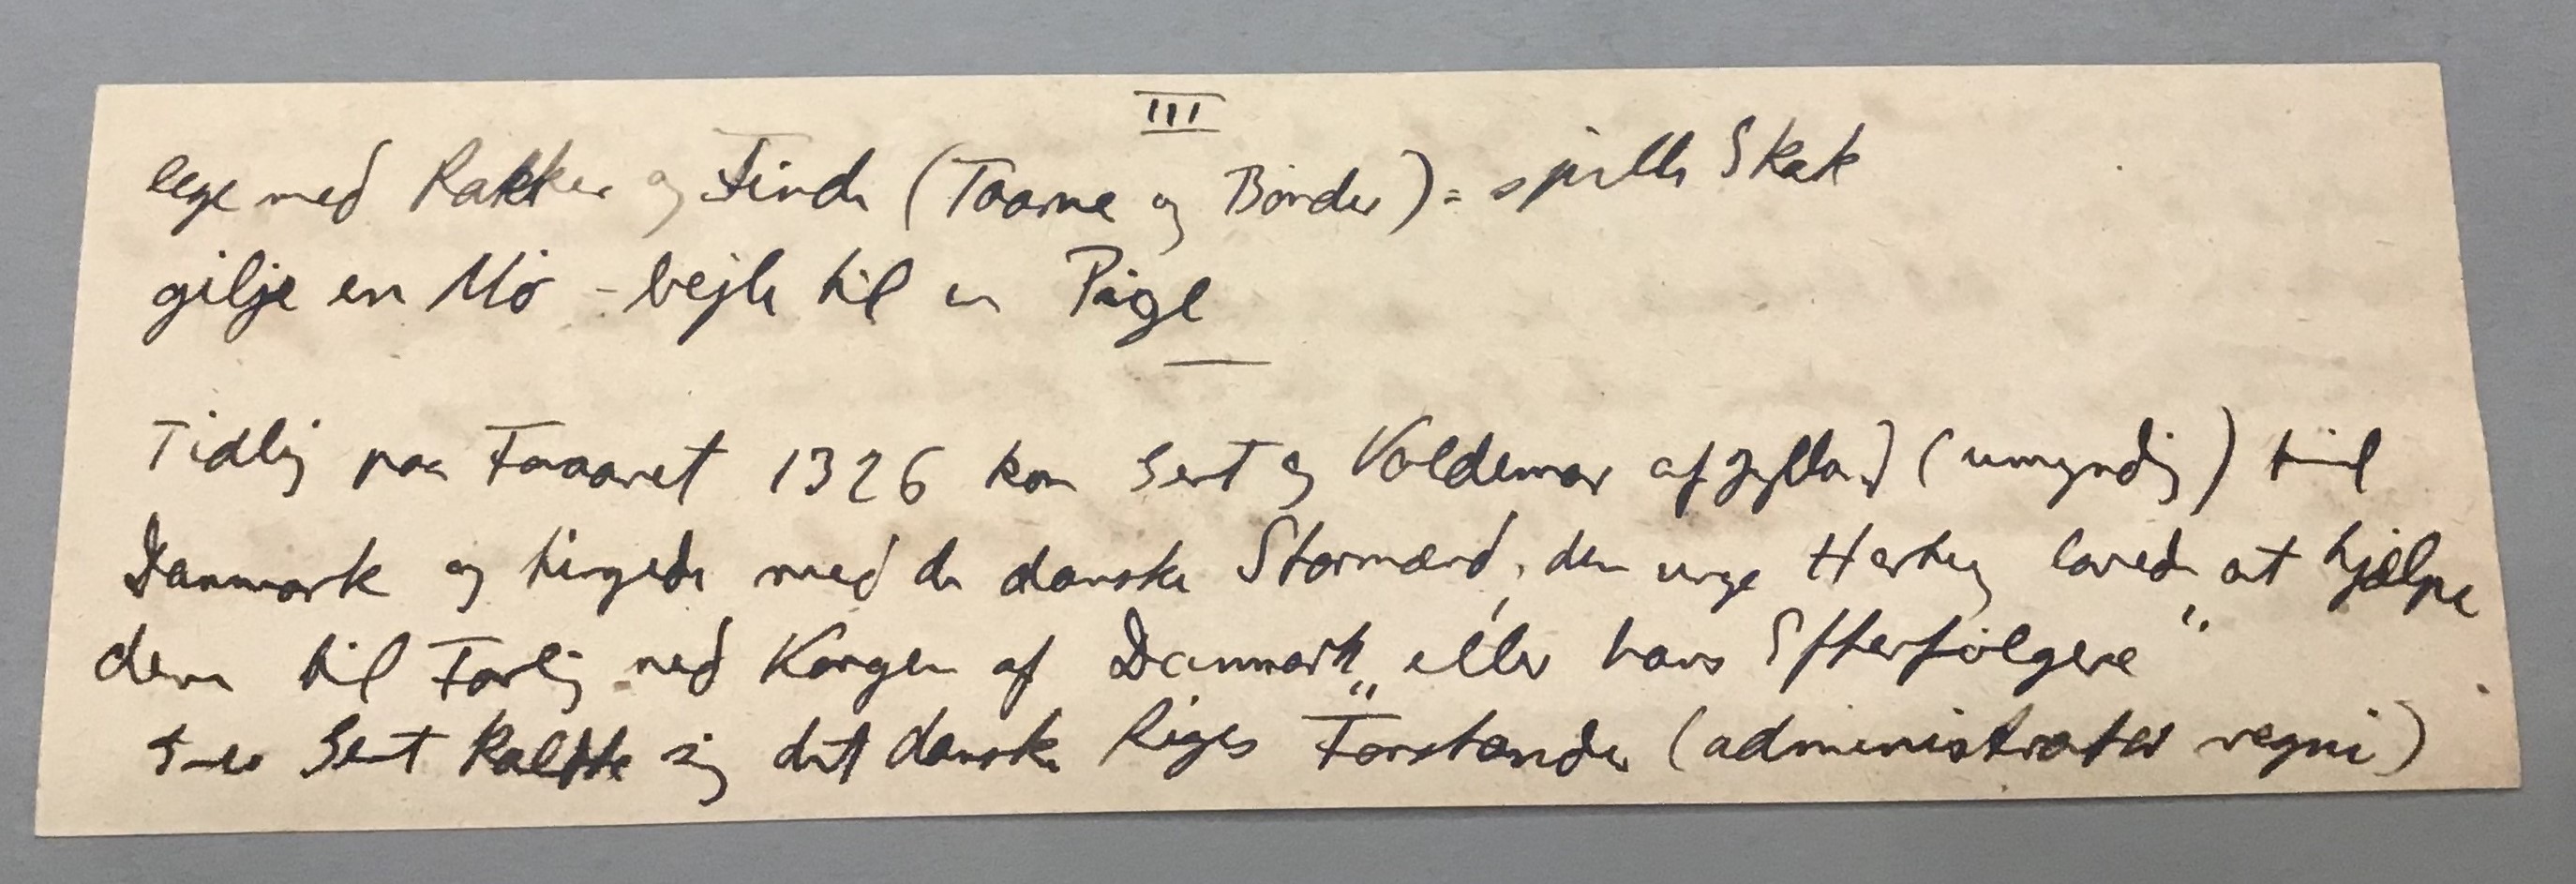 III
lege med Rokker og Finder (Taarne og Bønder) = spille Skak
gilje en Mø - bejle til en Pige
Tidlig paa Foraaret 1326 kom Gert og Valdemar af Jylland (umyndig) til
Danmark og tingede med de danske Stormænd, den unge Hertug lovede at hjælpe
dem til Forlig med Kongen af Danmark „eller hans Efterfølgere“
Grev Gert kaldte sig det danske Riges Forstander (administrator regni)